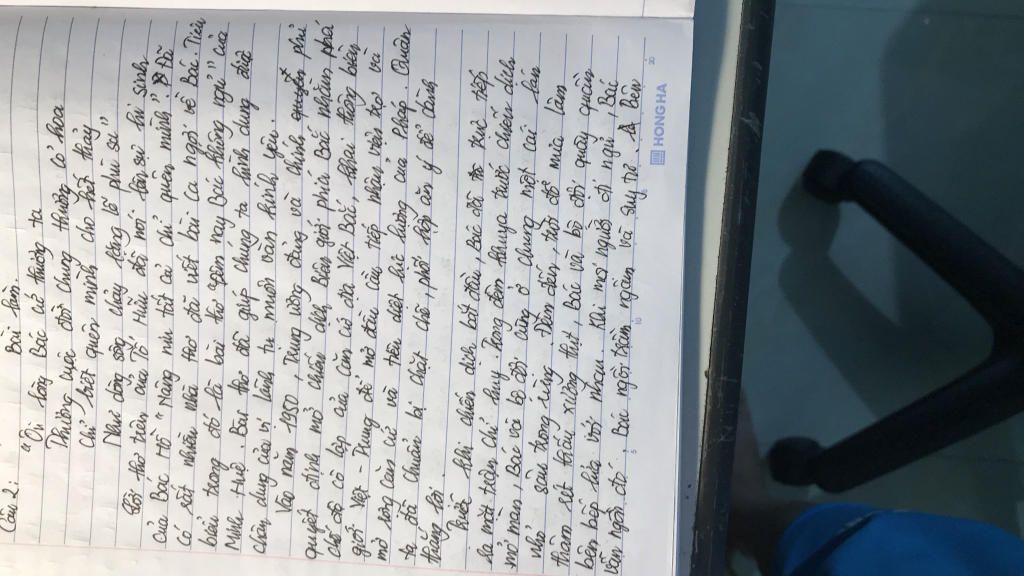 Câu 2: Bài làm.
"Ôi lòng Bác cứ thương ta
Thương cuộc đời chung thương cỏ hoa
Chỉ biết quên mình cho hết thảy
Như dòng sông chảy nặng lồ phù sa"
Bởi thơ trên của Tố Hữu đã nói lên sự hi sinh
của Bác Hồ "Nâng niu tất cả chỉ quên mình". Đã
có rất nhiều nhà thơ đã viết bài ca ngợi về Bác. Tiêu
biểu trong đó là bài thơ "Đêm nay Bác không ngủ" của
Minh Huệ. Bài thơ đã giúp chúng ta hình dung được
chân dung của vị lãnh tụ muôn vàn kính yêu.
Vào năm 1950, Trung ương đảng và chính phủ
quyết định mở chiến dịch biên giới phía Bắc nhằm phá
thế cô lập của căn cứ địa Việt Bắc, khai thông biên
giới Việt - Trung để mở đầu cầu tiếp nhận viện trợ và
mở rộng căn cứ và tiêu diệt lực lượng của Pháp. Quân
ta đã chuẩn bị chặt chẽ, phối hợp ăn ý để dành
thắng lợi.
Trước khi chiến dịch bắt đầu, Bác đã trực tiếp
ra mặt trận chỉ huy. Trong đêm khuya trước chiến dịch
mở màn, Bác và bộ đội cùng ở chung một cái lán
nhỏ sâu trong rừng. Đêm đến, trời đổ mưa lâm
thâm rét thấy xương thịt, Bác và bộ đội quây quần
bên bếp lửa với nhau. Khi mọi người đi ngủ, Bác
vẫn ngồi đó. Bác ngồi trầm ngâm và suy nghĩ. Bên
HONG HA
5
10
20